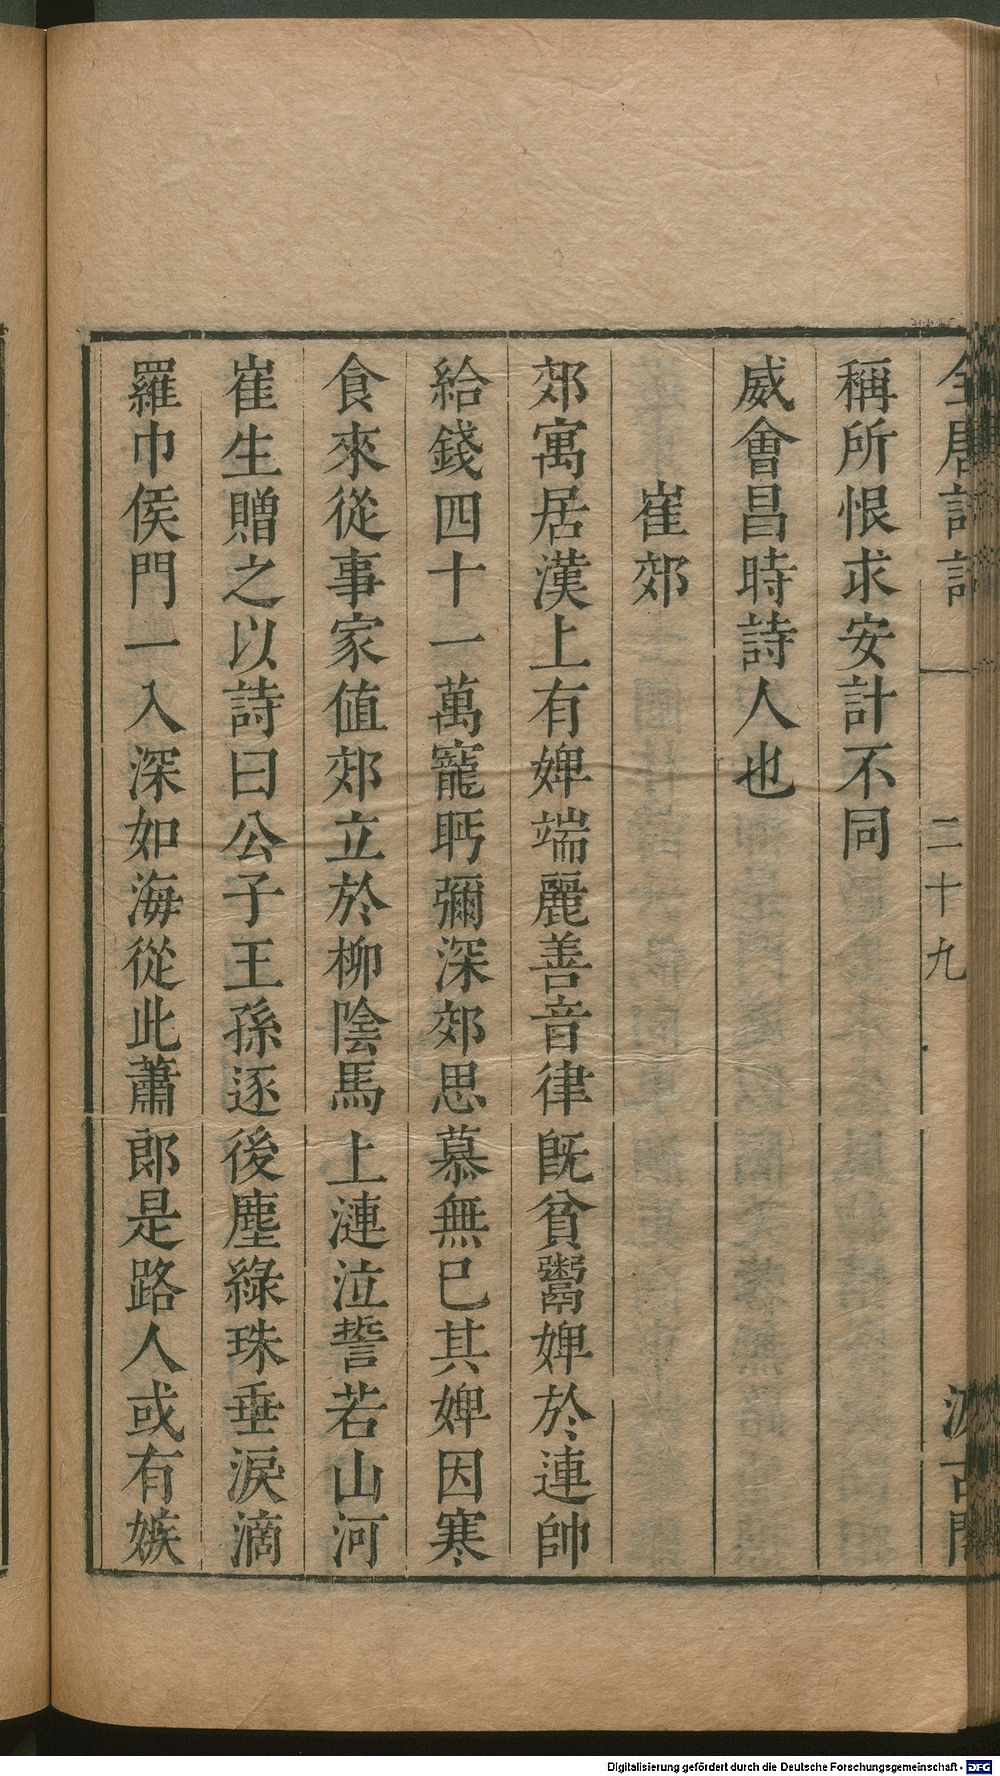 全唐詩話 二十九 汲古閣
稱所恨求安計不同
威會昌時詩人也
崔郊
郊寓居漢上有婢端麗善音律旣貧鬻婢於連帥
給錢四十一萬寵眄彌深郊思慕無已其婢因寒
食來從事家值郊立於柳陰馬上漣泣誓若山河
崔生贈之以詩曰公子王孫逐後塵綠珠垂淚滴
羅巾侯門一入深如海從此蕭郎是路人或有嫉
Digitalisierung gefördert durch die Deutsche Forschungsgemeinschaft - DFG